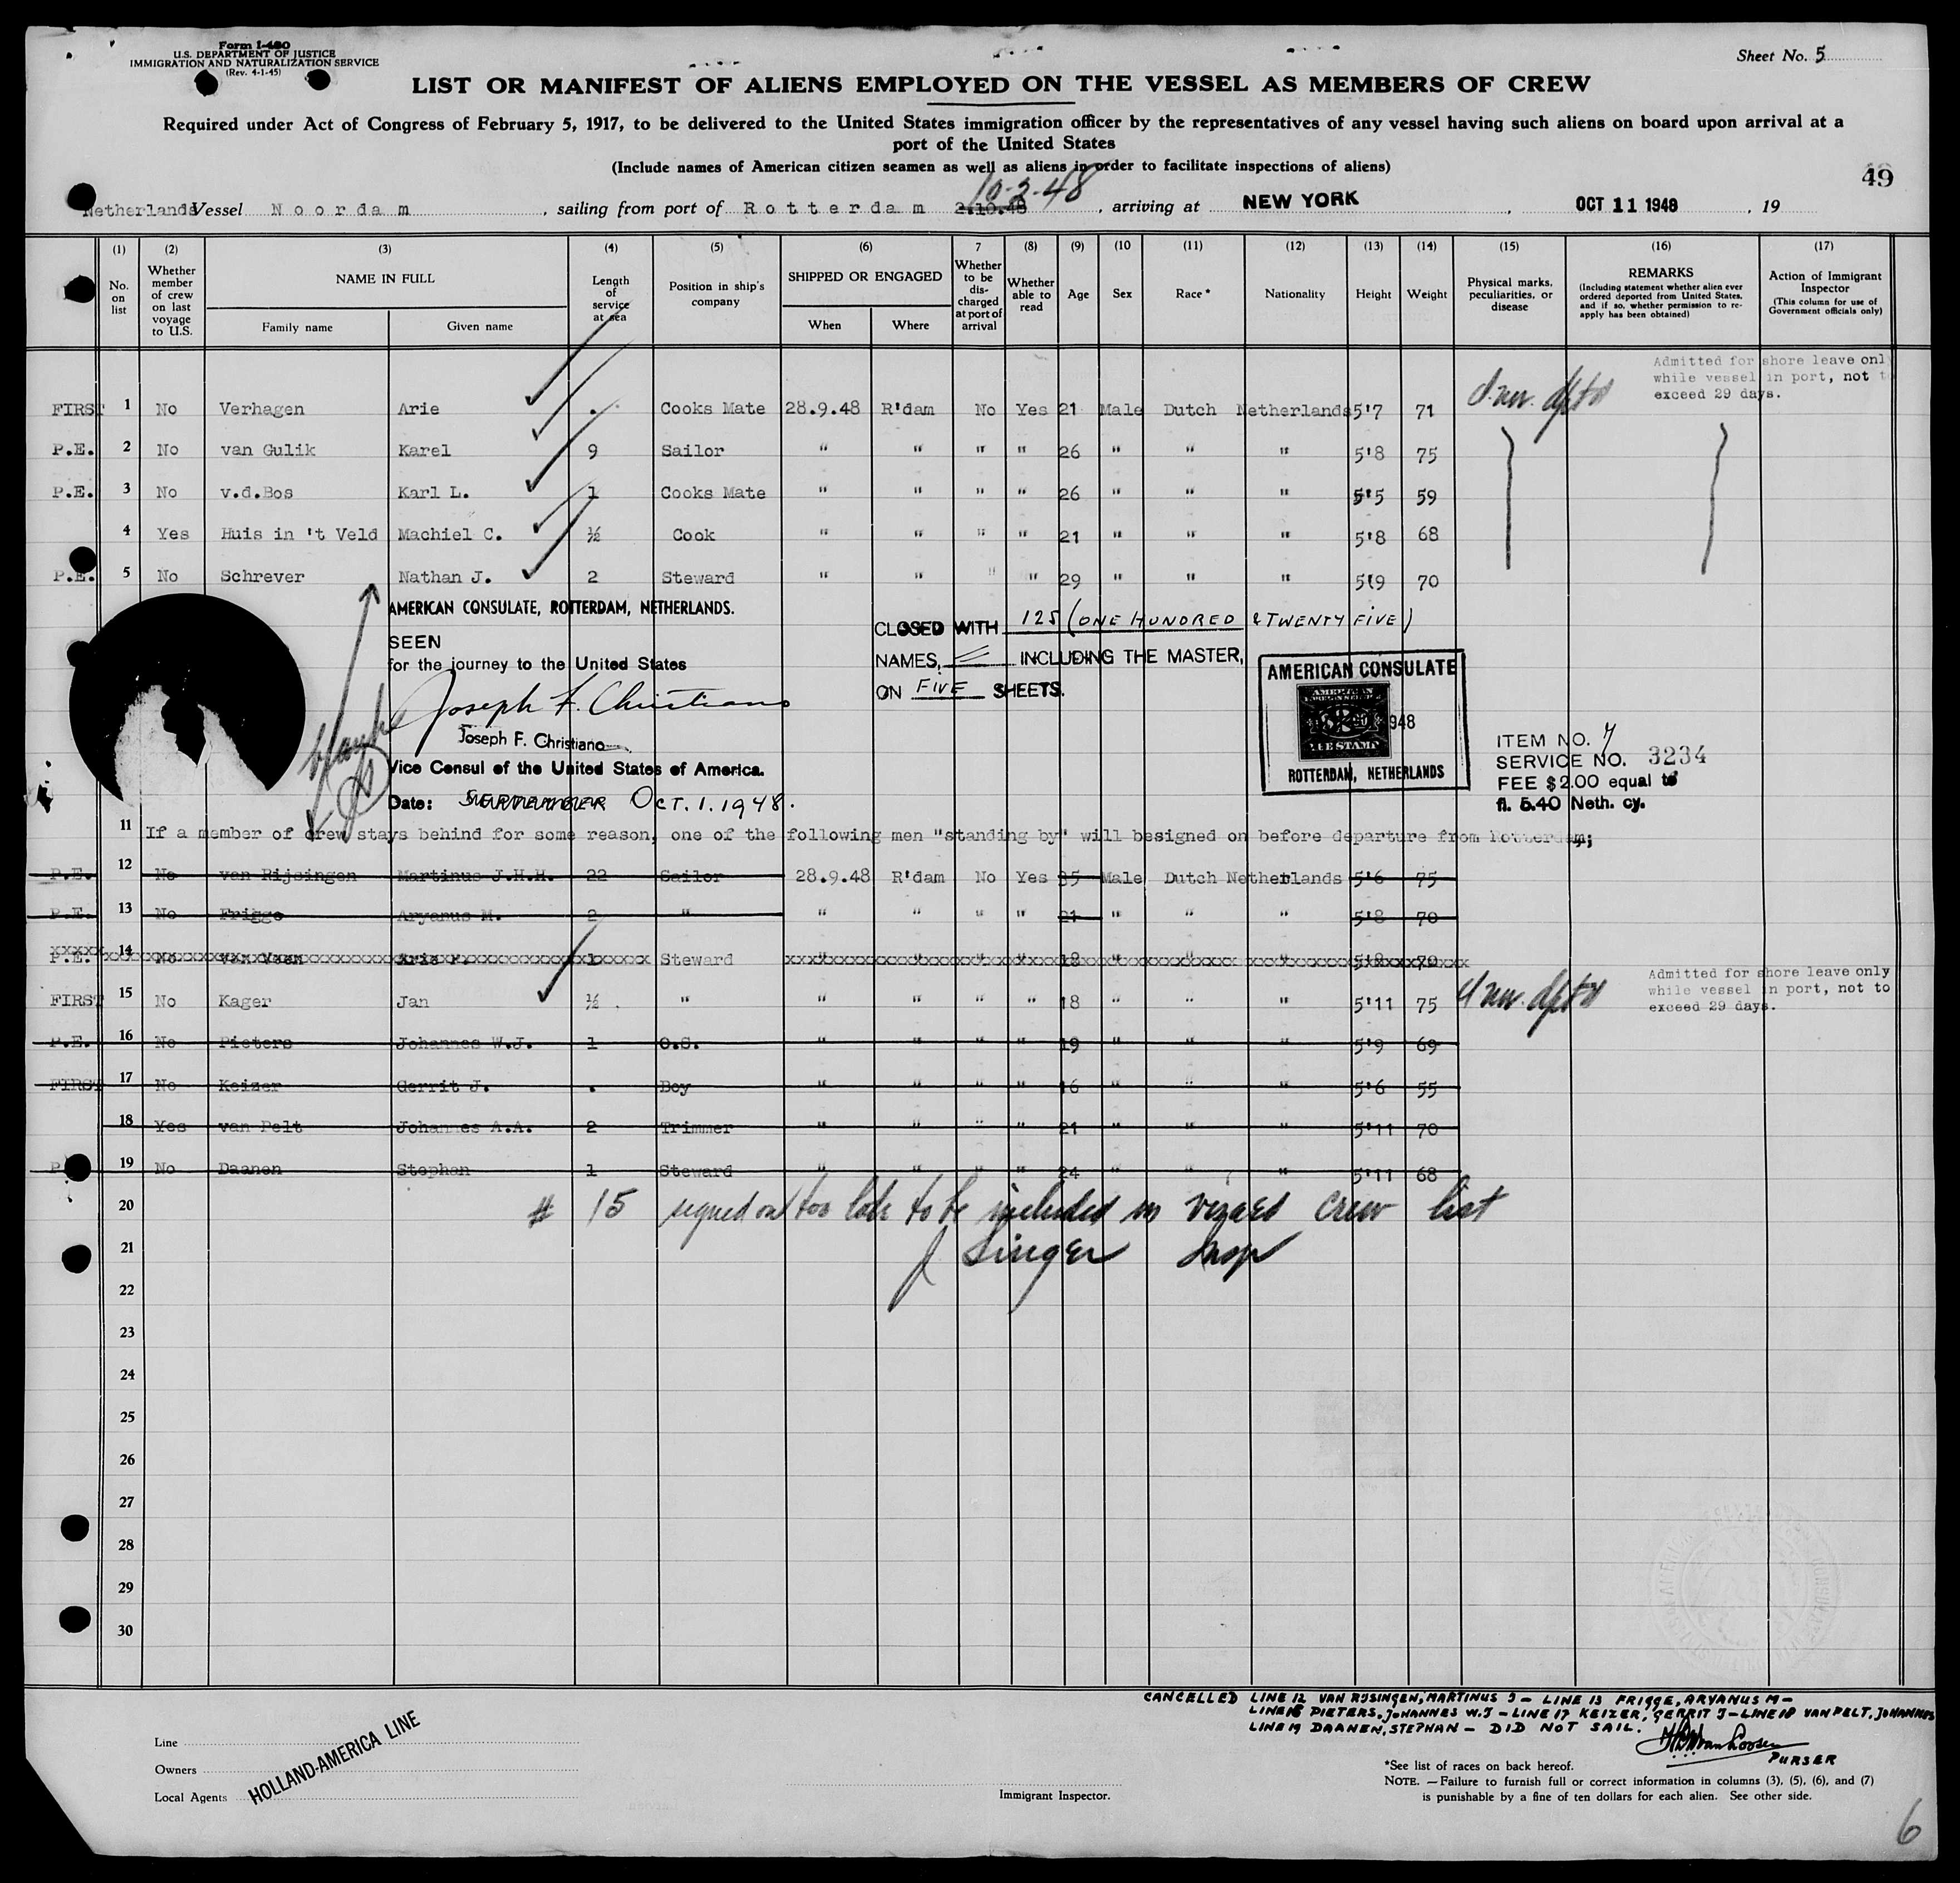 Form I-480
U.S. DEPARTMENT OF JUSTICE
IMMIGRATION AND NATURALIZATION SERVICE
(Rev. 4-1-45)
Sheet No. 5
LIST OR MANIFEST OF ALIENS EMPLOYED ON THE VESSEL AS MEMBERS OF CREW
Required under Act of Congress of February 5, 1917, to be delivered to the United States immigration officer by the representatives of any vessel having such aliens on board upon arrival at a
port of the United States
(Include names of American citizen seamen as well as aliens in order to facilitate inspections of aliens)
49
10-3-48
Netherlands Vessel Noordam, sailing from port of Rotterdam 2.10.48, arriving at NEW YORK, OCT 11 1948, 19
(1) (2) (3) (4) (5) (6) 7 (8) (9) (10 (11) (12) (13) (14) (15) (16) (17)
No. on list
Whether member of crew on last voyage to U.S.
NAME IN FULL
Family name Given name
Length of service at sea
Position in ship's company
SHIPPED OR ENGAGED
When Where
Whether to be discharged at port of arrival
Whether able to read
Age
Sex
Race*
Nationality
Height
Weight
Physical marks, peculiarities, or disease
REMARKS
(Including statement whether alien ever ordered deported from United States, and if so, whether permission to reapply has been obtained)
Action of Immigrant Inspector
(This column for use of Government officials only)
Admitted for shore leave only
while vessel in port, not to
exceed 29 days.
FIRST 1 No Verhagen Arie . Cooks Mate 28.9.48 R'dam No Yes 21 Male Dutch Netherlands 5'7 71
P.E. 2 No van Gulik Karel 9 Sailor " " " " 26 " " " 5'8 75
P.E. 3 No v.d.Bos Karl L. 1 Cooks Mate " " " " 26 " " " 5'5 59
4 Yes Huis in 't Veld Machiel C. ½ Cook " " " " 21 " " " 5'8 68
P.E. 5 No Schrever Nathan J. 2 Steward " " " " 29 " " " 5'9 70
AMERICAN CONSULATE, ROTTERDAM, NETHERLANDS.
SEEN
for the journey to the United States
Joseph F. Christiano
Joseph F. Christiano
Vice Consul of the United States of America.
Date: SEPTEMBER OCT. 1. 1948.
CLOSED WITH 125 (ONE HUNDRED & TWENTY FIVE)
NAMES, INCLUDING THE MASTER,
ON FIVE SHEETS.
AMERICAN CONSULATE
FEE STAMP
1948
ROTTERDAM, NETHERLANDS
ITEM NO. 7
SERVICE NO. 3234
FEE $2.00 equal to
fl. 5.40 Neth. cy.
11 If a member of crew stays behind for some reason, one of the following men "standing by" will besigned on before departure from Rotterdam;
P.E. 12 No van Rijsingen Martinus J.H.H. 22 Sailor 28.9.48 R'dam No Yes 35 Male Dutch Netherlands 5'6 75
P.E. 13 No Frigge Aryanus M. 2 " " " " " 21 " " " 5'8 70
P.E. 14 No van Veen Arie 1 Steward " " " " 18 " " " 5'8 70
Admitted for shore leave only
while vessel in port, not to
exceed 29 days.
FIRST 15 No Kager Jan ½ " " " " " 18 " " " 5'11 75
P.E. 16 No Pieters Johannes W.J. 1 O.S. " " " " 19 " " " 5'9 69
FIRST 17 No Keizer Gerrit J. . Boy " " " " 16 " " " 5'6 55
18 Yes van Pelt Johannes A.A. 2 Trimmer " " " " 21 " " " 5'11 70
19 No Daanen Stephan 1 Steward " " " " 24 " " " 5'11 68
20 # 15 signed on too late to be included in visaed crew list
21 J Singer Insp
22
23
24
25
26
27
28
29
30
CANCELLED LINE 12 VAN RIJSINGEN, MARTINUS J - LINE 13 FRIGGE, ARYANUS M -
LINE 16 PIETERS, JOHANNES W.J - LINE 17 KEIZER, GERRIT J - LINE 18 VAN PELT, JOHANNES
LINE 19 DAANEN, STEPHAN - DID NOT SAIL.
PURSER
Line
Owners
Local Agents
HOLLAND-AMERICA LINE
Immigrant Inspector.
*See list of races on back hereof.
NOTE. — Failure to furnish full or correct information in columns (3), (5), (6), and (7)
is punishable by a fine of ten dollars for each alien. See other side.
6